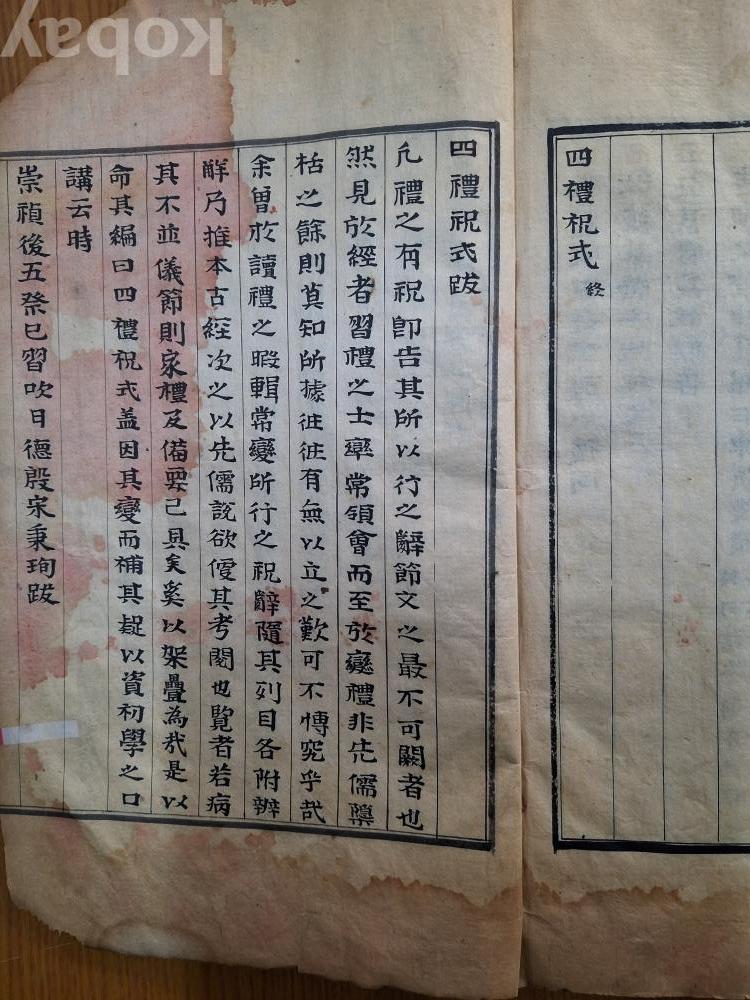 四禮祝式 終
四禮祝式跋
凡禮之有祝卽告其所以行之辭節文之最不可闕者也
然見於經者習禮之士率常領會而至於變禮非先儒檃
栝之餘則莫知所據往往有無以立之歎可不慱究乎哉
余曾於讀禮之暇輯常變所行之祝辭隨其列目各附辨
觧乃推本古經次之以先儒說欲便其考閱也覽者若病
其不並儀節則家禮及備要已具矣奚以架疊為哉是以
命其編曰四禮祝式盖因其變而補其疑以資初學之口
講云時
崇禎後五癸巳習吹日德殷宋秉珣跋
kobay